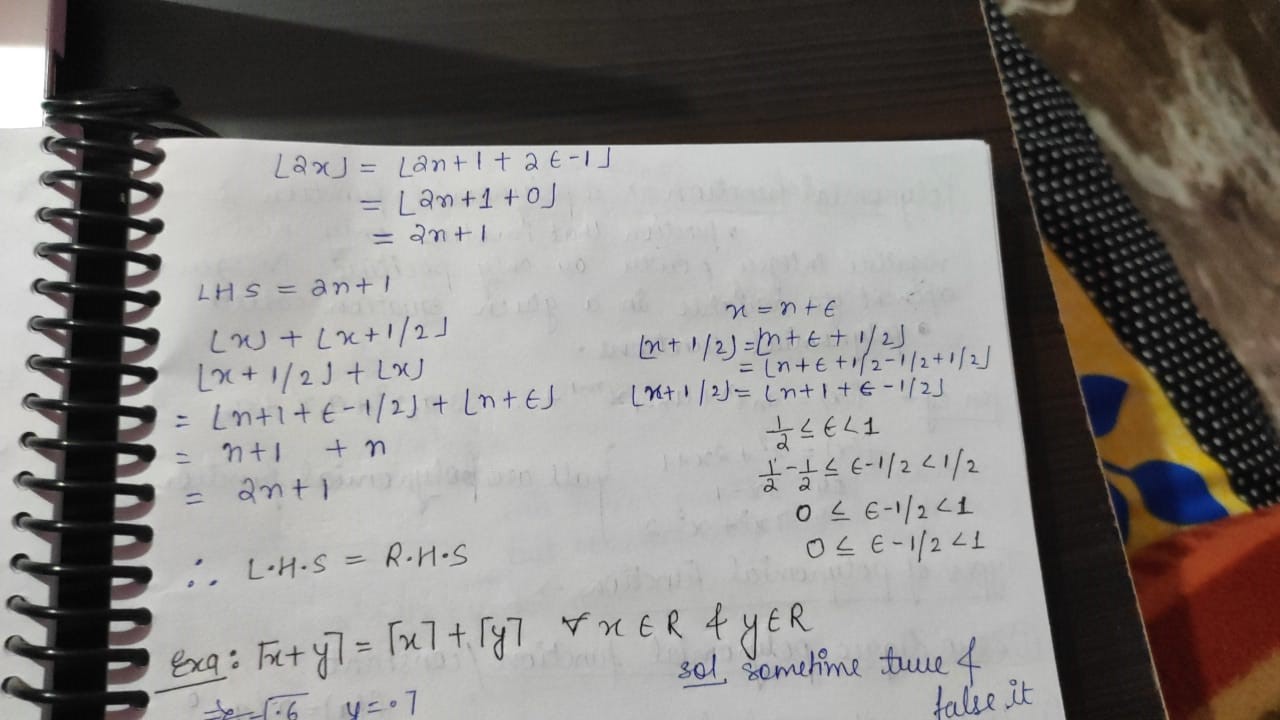 ⌊2x⌋ = ⌊2n+1+2ϵ-1⌋
= ⌊2n+1+0⌋
= 2n+1
LHS = 2n+1
⌊x⌋ + ⌊x+1/2⌋
⌊x+1/2⌋ + ⌊x⌋
= ⌊n+1+ϵ-1/2⌋ + ⌊n+ϵ⌋
= n+1 + n
= 2n+1
∴ L.H.S = R.H.S
x = n+ϵ
⌊x+1/2⌋ = ⌊n+ϵ+1/2⌋
= ⌊n+ϵ+1/2-1/2+1/2⌋
⌊x+1/2⌋ = ⌊n+1+ϵ-1/2⌋
1/2 ≤ ϵ < 1
1/2 - 1/2 ≤ ϵ-1/2 < 1/2
0 ≤ ϵ-1/2 < 1
0 ≤ ϵ-1/2 < 1
Exq: ⌈x+y⌉ = ⌈x⌉ + ⌈y⌉ ∀ x ∈ R & y ∈ R
sol. sometime true &
false it
y = .7